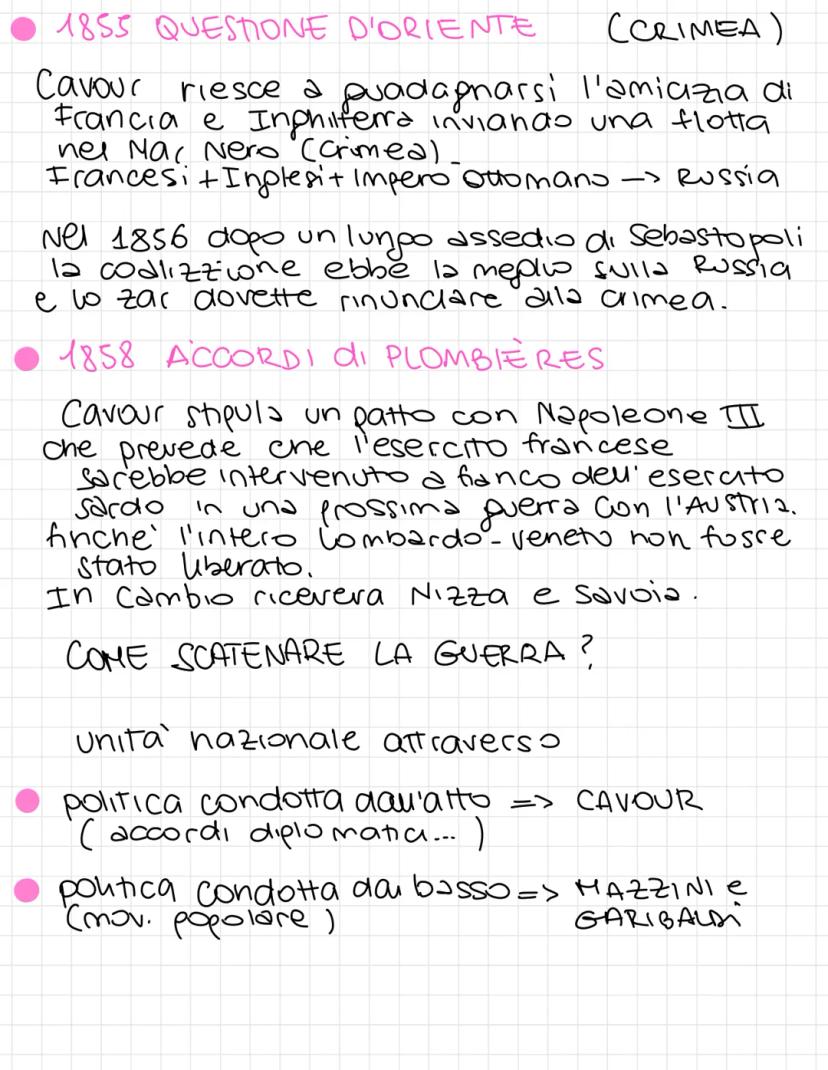 1855 QUESTIONE D'ORIENTE (CRIMEA)
Cavour riesce a guadagnarsi l'amicizia di
Francia e Inghilterra inviando una flotta
nel Mar Nero (Crimea)
Francesi + Inglesi + Impero Ottomano -> RUSSIA
Nel 1856 dopo un lungo assedio di Sebastopoli
la coalizzione ebbe la meglio sulla Russia
e lo zar dovette rinunciare alla crimea.
1858 ACCORDI di PLOMBIÈRES
Cavour stipula un patto con Napoleone III
che prevede che l'esercito francese
sarebbe intervenuto a fianco dell'esercito
sardo in una prossima guerra con l'AUSTRIA.
finchè l'intero Lombardo-veneto non fosse
stato liberato.
In cambio ricevera Nizza e Savoia.
COME SCATENARE LA GUERRA?
unità nazionale attraverso
politica condotta dall'alto => CAVOUR
(accordi diplomatici...)
politica condotta dal basso => MAZZINI e
(mov. popolare) GARIBALDI